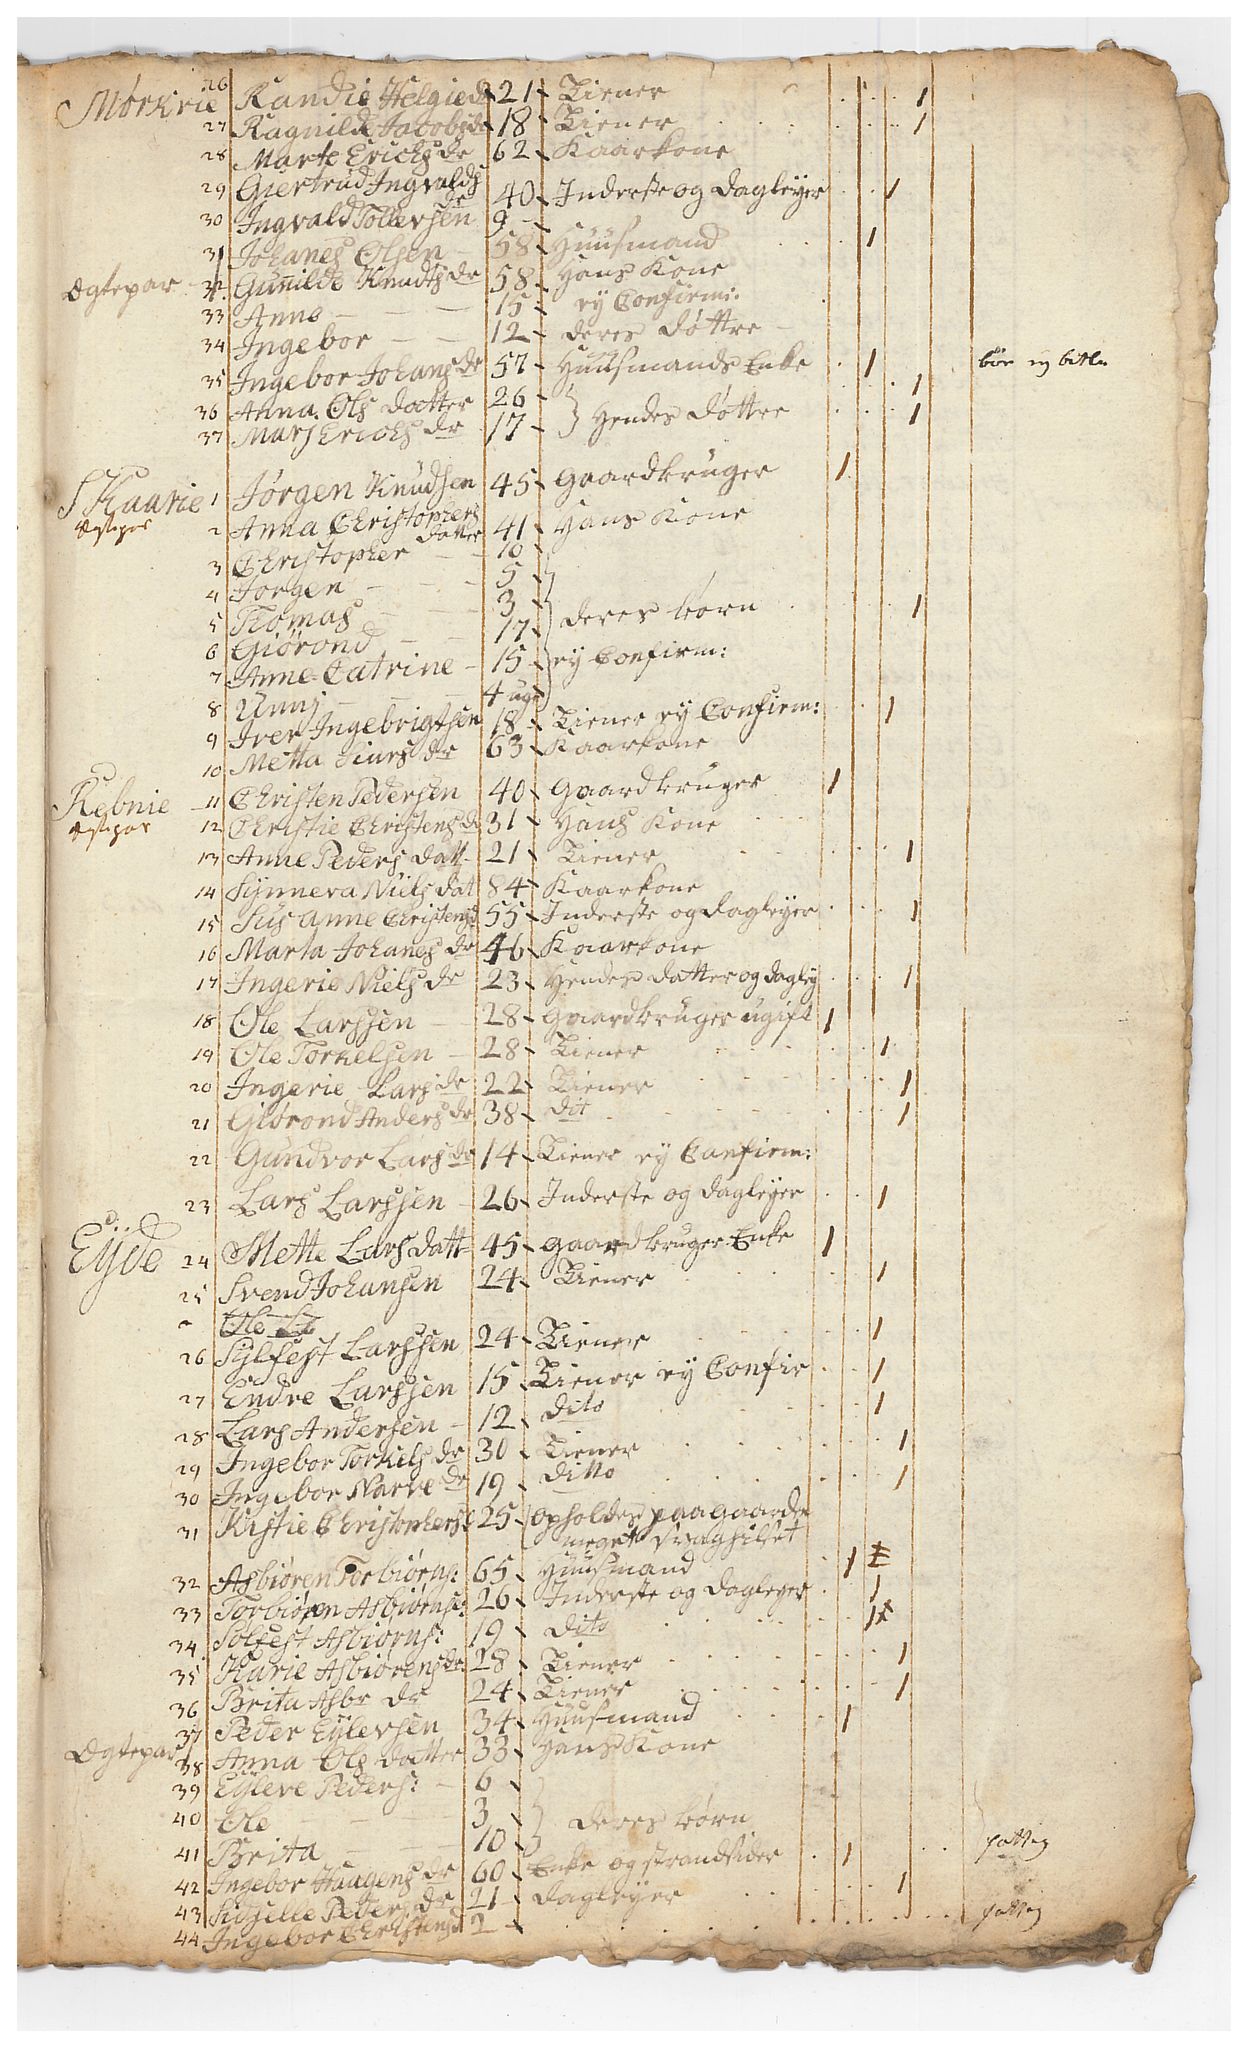 Mørkrie 26 Randie Helgied 21 Tiener 1
27 Ragnilde Jacobsdr 18 Tiener 1
28 Marte Erichs dr 62 Kaarkone
29 Giertrud Ingvalds dr 40 Inderste og dagleyer 1
30 Ingvald Tollevsen 9
31 Johanes Olsen 58 Huusmand 1
Ægtepar 32 Gunnilde Knudts dr 58 Hans Kone
33 Anne 15 ey Confirm:
34 Ingebor 12 deres døttre
35 Ingebor Johans dr 57 Huusmands Enke 1
36 Anna Ols datter 26 1
37 Marj Erichs dr 17 } Hendes døttre 1
Skaarie 1 Jørgen Knudsen 45 Gaardbruger 1
Ægtepar 2 Anna Christophers datter 41 Hans Kone
3 Christopher 10
4 Jørgen 5
5 Tomas 3 } deres børn 1
6 Giørond 17
7 Anne Catrine 15 ey Confirm:
8 Unnj 4 uge
9 Iver Ingebrigtsen 18 Tiener ey Confirm: 1
10 Metta Siurs dr 63 Kaarkone
Rebnie 11 Christen Pedersen 40 Gaardbruger 1
Ægtepar 12 Christie Christens d 31 Hans Kone
13 Anne Peders datt 21 Tiener 1
14 Synneva Niels dat 84 Kaarkone
15 Susanne Christensd 55 Inderste og dagleyer 1
16 Marta Johanes dr 46 Kaarkone
17 Ingerie Niels dr 23 Hendes datter og dagley 1
18 Ole Larssen 28 Gaardbruger ugift 1
19 Ole Torkelsen 28 Tiener 1
20 Ingerie Lars dr 22 Tiener 1
21 Giørond Anders dr 38 dit 1
22 Gundvor Lars dr 14 Tiener ey Confirm:
23 Lars Larssen 26 Inderste og dagleyer 1
Eÿde 24 Mette Lars datt 45 gaardbruger Enke 1
25 Svend Johansen 24 Tiener 1
Ole
26 Sylfest Larssen 24 Tiener 1
27 Endre Larssen 15 Tiener ey Confir 1
28 Lars Andersen 12 dito 1
29 Ingebor Torkels dr 30 Tiener 1
30 Ingebor Narve dr 19 ditto 1
31 Kistie Christophers 25 opholdes paa gaarden
meget svaghilset
32 Asbiøren Torbiørns: 65 Huusmand 1
33 Torbiøren Asbiørns: 26 Inderste og dagleyer 1
34 Sølfest Asbiørns: 19 dito 1
35 Karie Asbiørens dr 28 Tiener 1
36 Brita Asbr dr 24 Tiener 1
37 Peder Eÿlevsen 34 Huusmand 1
Ægtepar 38 Anna Ols datter 33 Hans Kone
39 Eÿleve Peders: 6
40 Ole 3 } deres børn
41 Brita 10
42 Ingebor Haagens dr 60 Enke og strandsider 1
43 Sidselle Peders dr 21 dagleyer 1
44 Ingebor Christensd 2